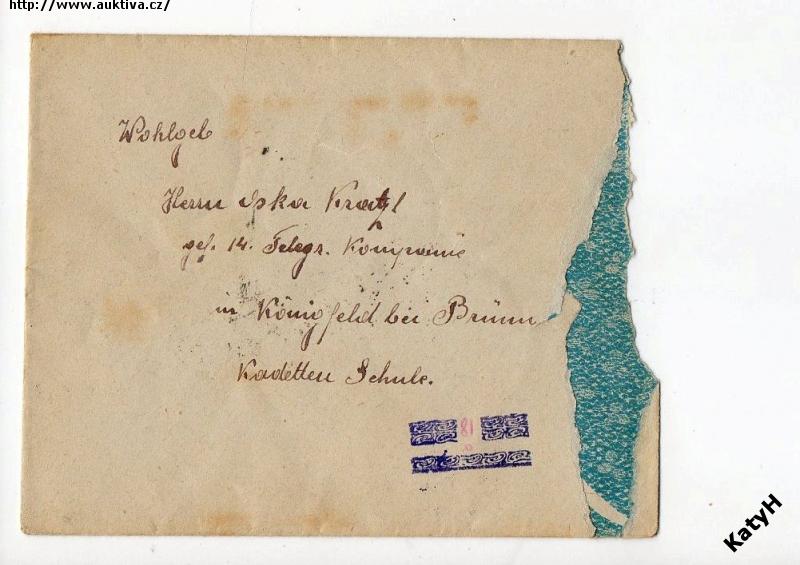 http://www.auktiva.cz/
Wohlgeb
Herrn Oska Kratzl
gef. 14. Telegr. Kompanie
in Königfeld bei Brünn
Kadetten Schule.
18
KatyH